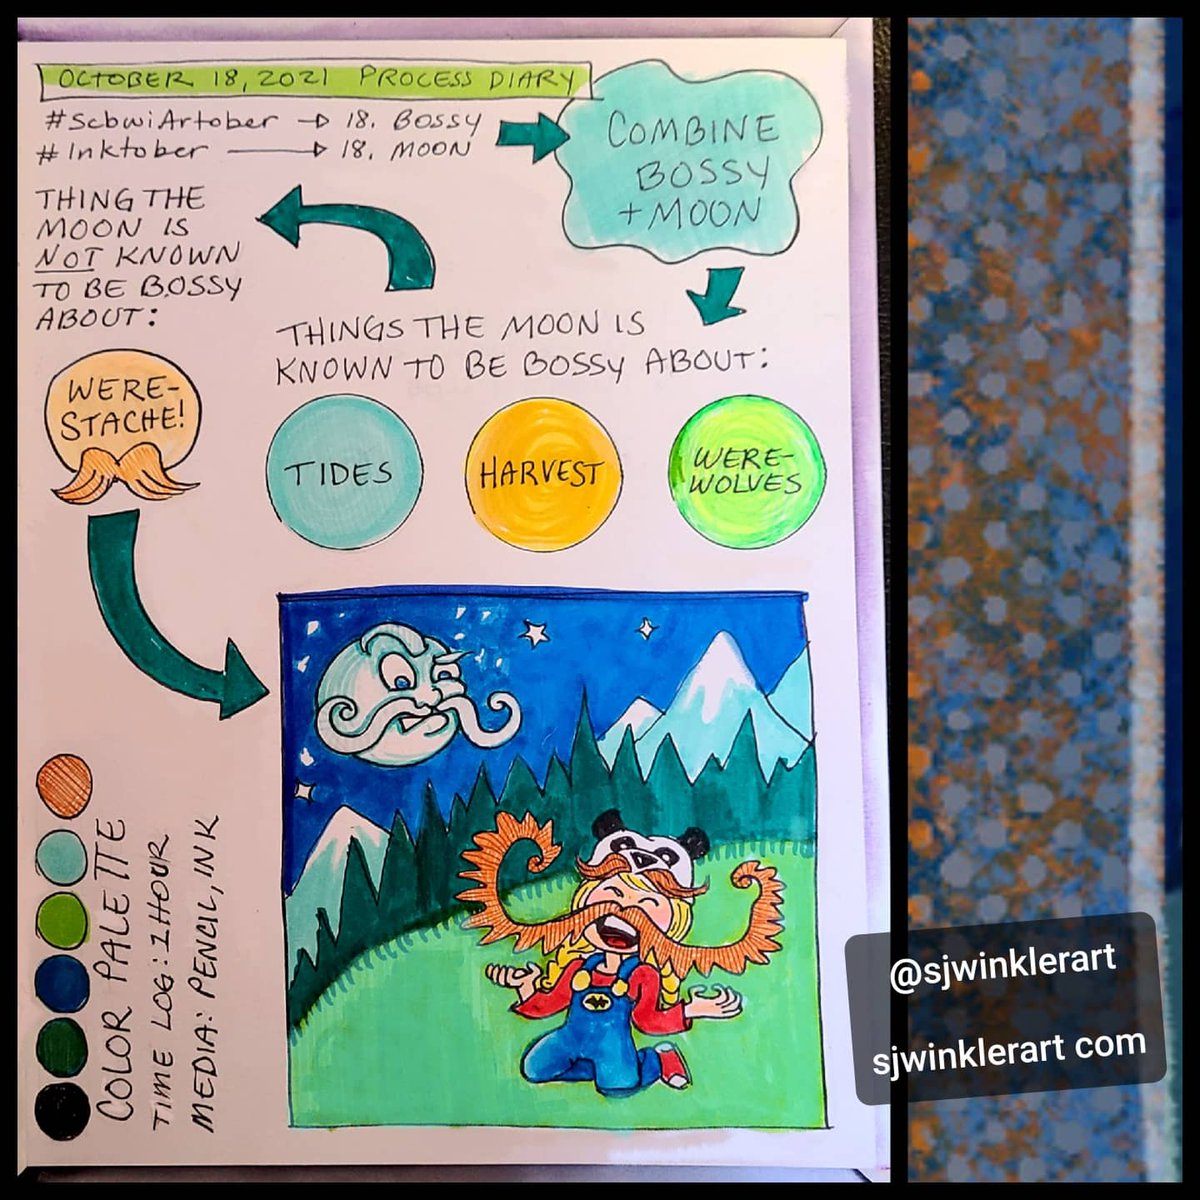 OCTOBER 18, 2021 PROCESS DIARY
#ScbwiArtober → 18. BOSSY
#Inktober → 18. MOON
COMBINE
BOSSY
+ MOON
THING THE
MOON IS
NOT KNOWN
TO BE BOSSY
ABOUT:
THINGS THE MOON IS
KNOWN TO BE BOSSY ABOUT:
WERE-
STACHE!
TIDES
HARVEST
WERE-
WOLVES
COLOR PALETTE
TIME LOG: 1 HOUR
MEDIA: PENCIL, INK
@sjwinklerart
sjwinklerart com